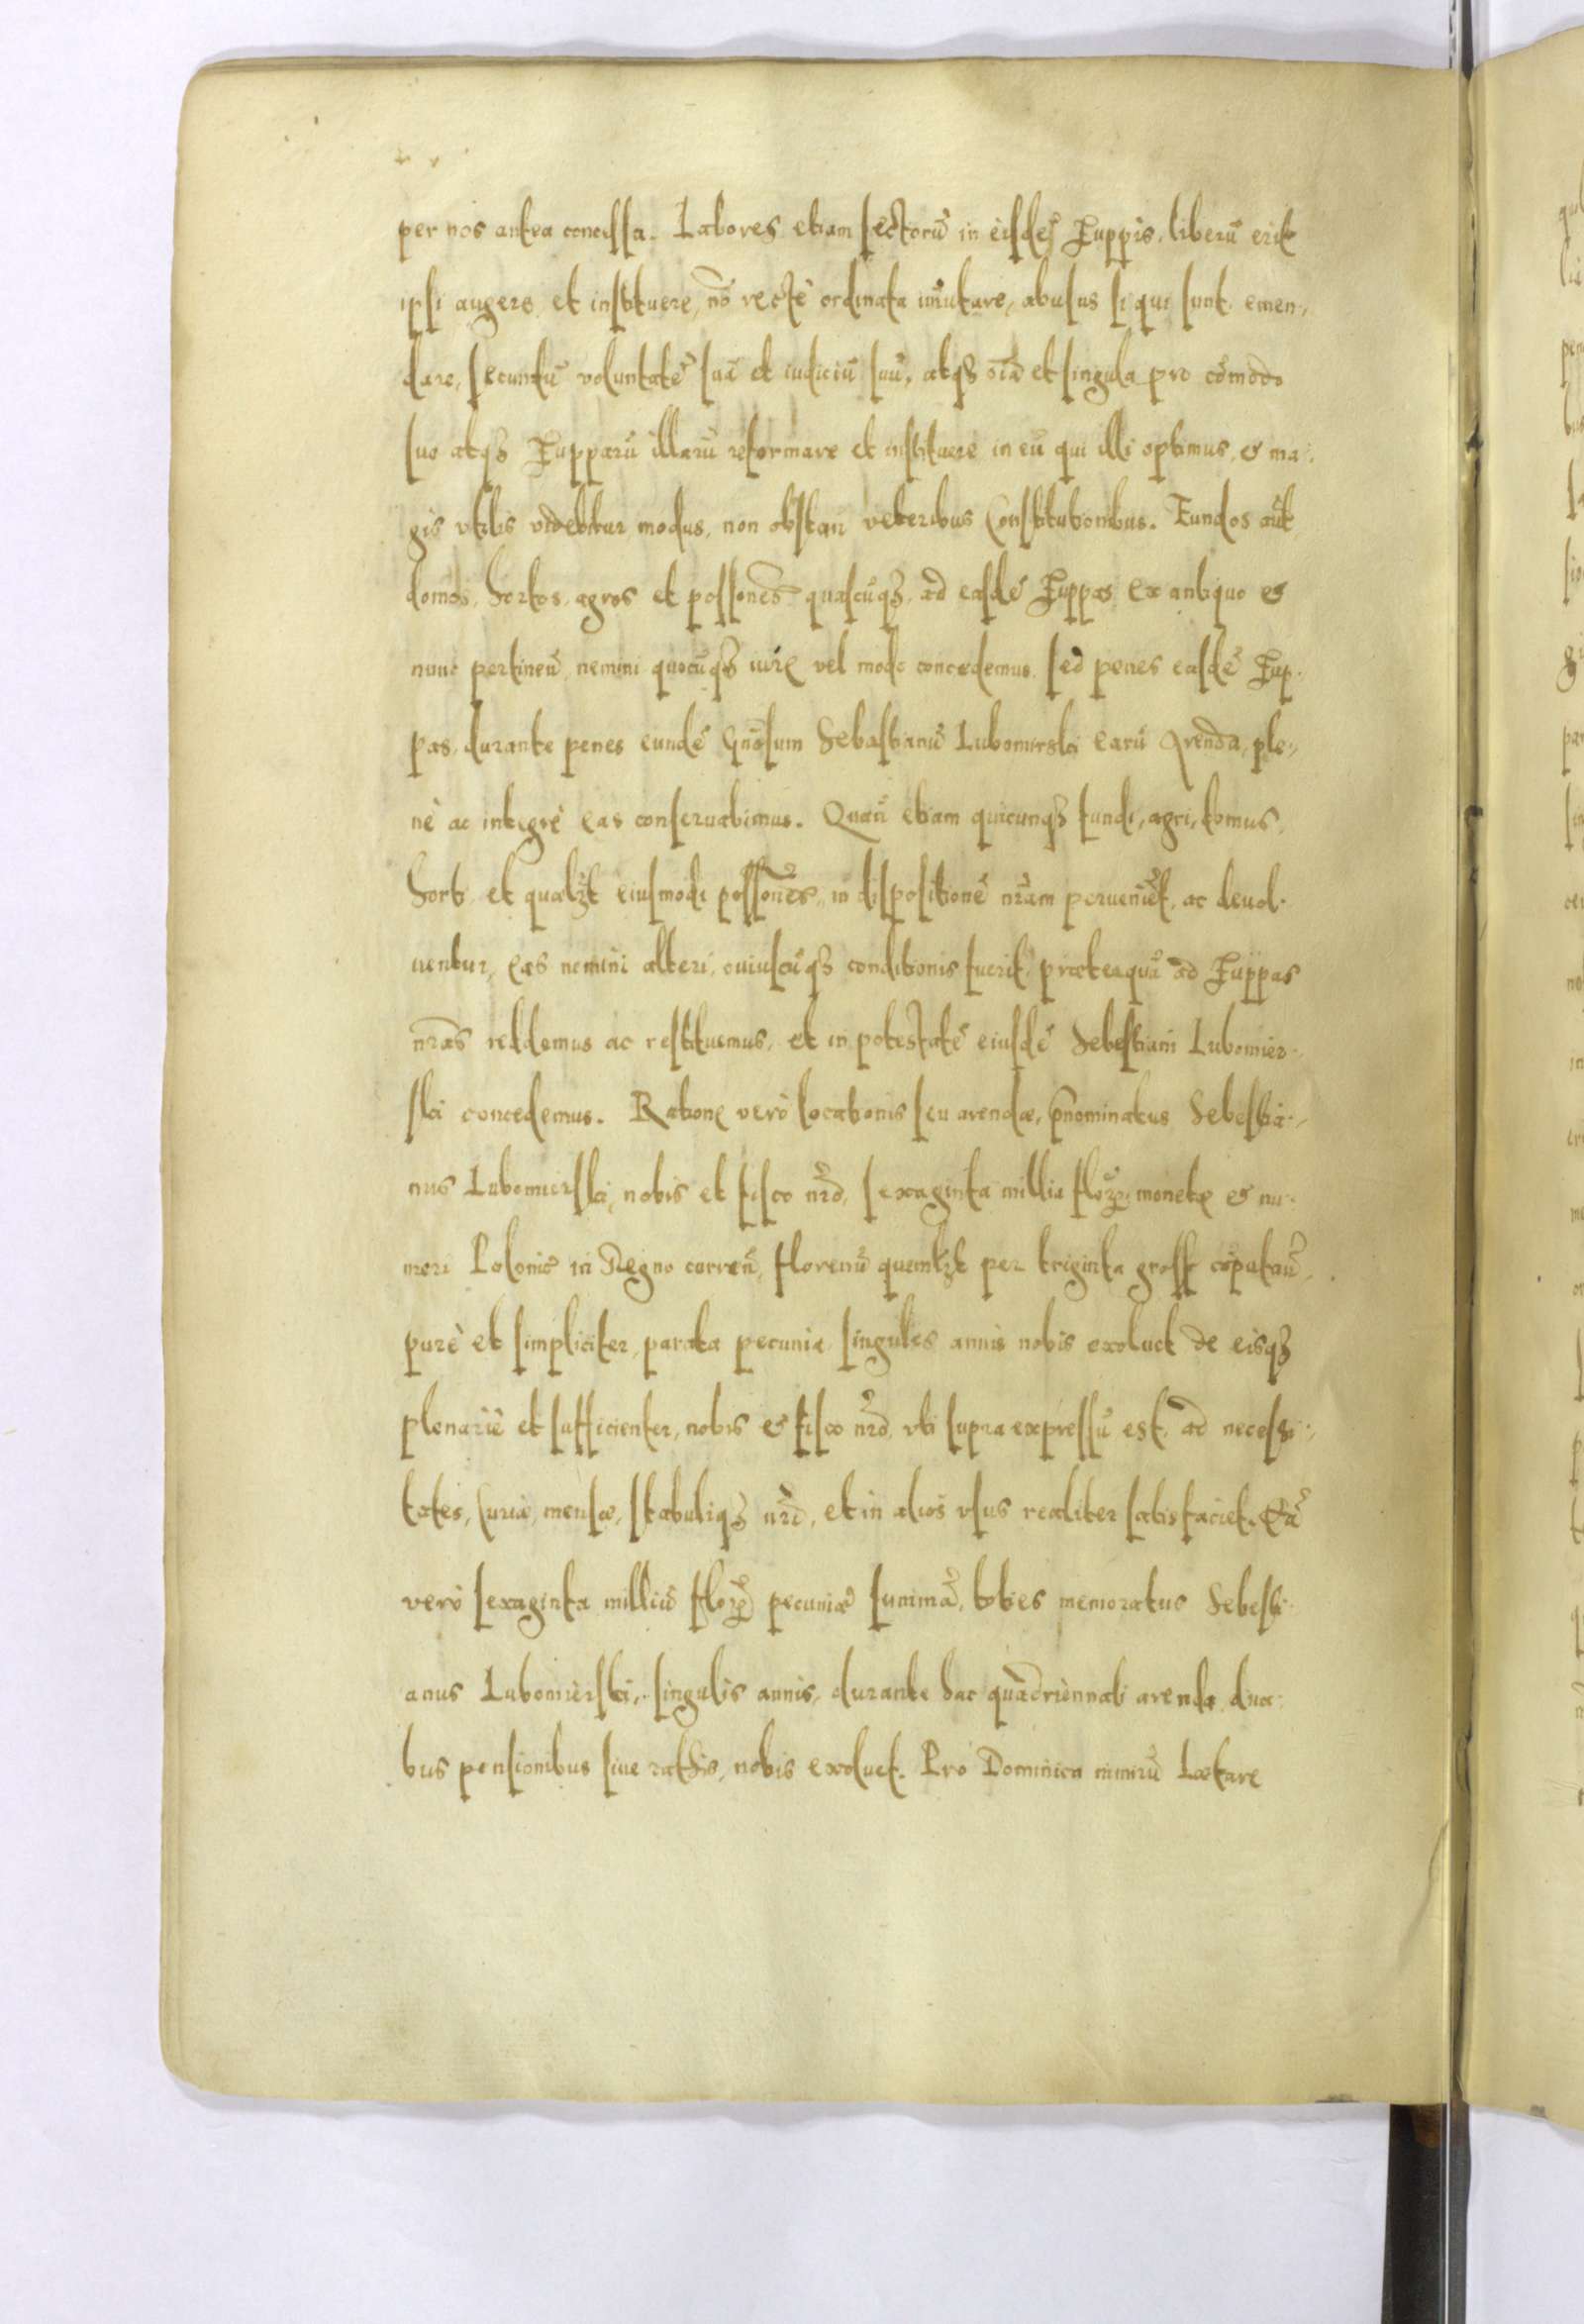 per nos antea concessa. Labores etiam sectorũ in eisdẽ Zuppis, liberũ erit
ipsi augere et instituere, nõ rectè ordinata im̃utare, abusus si qui sunt emen„
dare, secundũ voluntatẽ suã et iudiciũ suũ, atqȝ oĩa et singula pro cõmodo
suo atqȝ Zupparũ illarũ reformare et instituere in eũ qui illi optimus, & ma„
gis vtilis videbitur modus, non obstañ veteribus Constitutionibus. Fundos aũt
domos, hortos, agros et possiones̃ quascũqȝ, ad easdẽ Zuppas ex antiquo &
nunc pertineñ, nemini quocũqȝ iure vel modo concedemus, sed penes easdẽ Zup„
pas, durante penes eundẽ Gñosum Sebastianũ Lubomirski earũ Arenda, ple„
nè ac integrè eas conseruabimus. Quañ etiam quicunqȝ fundi, agri, domus,
horti et quælȝt eiusmodi possiões, in dispositionẽ nr̃am peruenient, ac deuol„
uentur, eas nemini alteri, cuiuscũqȝ conditionis fuerit, præterquã ad Zuppas
nr̃as reddemus ac restituemus, et in potestatẽ eiusdẽ Sebestiani Lubomier„
ski concedemus. Ratione verò locationis seu arendæ, p̃nominatus Sebestia„
nus Lubomierski, nobis et fisco nr̃o, sexaginta millia florȝ monetæ & nu„
meri Polonic̃ in Regno curreñ, florenũ quemlȝt per triginta gross cõputañ,
purè et simpliciter, parata pecunia singulis annis nobis exoluet de eisqȝ
plenariè et sufficienter, nobis & fisco nr̃o, vti supra expressũ est, ad necessi„
tates, Curiæ, mensæ, stabuliqȝ nr̃i, et in alios vsus realiter satisfaciet. Eã
verò sexaginta milliũ florȝ pecuniæ summã, toties memoratus Sebesti„
anus Lubomierski, singulis annis, durante hac quadriennali arenda, dua„
bus pensionibus siue rathis, nobis exoluet. Pro Dominica nimirũ Lætare